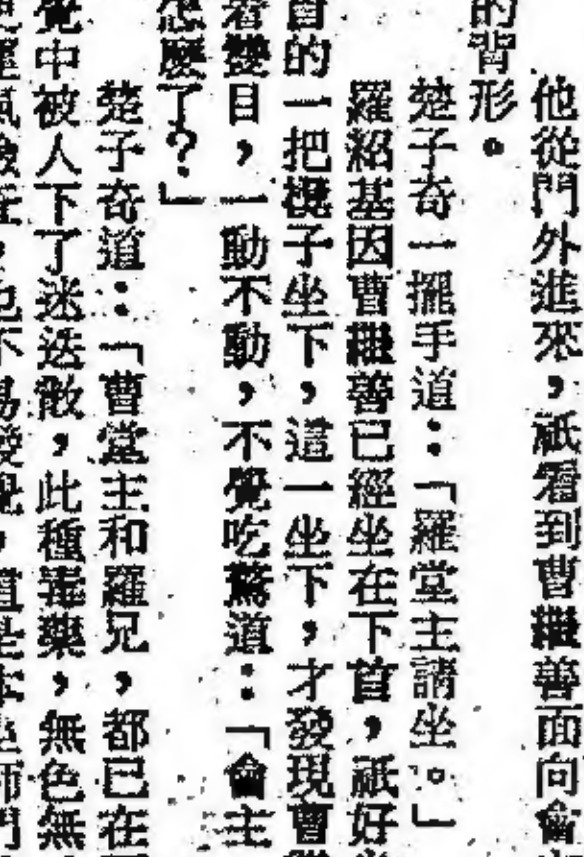 他從門外進來，祇看到曹繼善面向會
的背形。
楚子奇一擺手道：「羅堂主請坐。」
羅紹基因曹繼善已經坐在下首，祇好
首的一把椅子坐下，這一坐下，才發現曹
着雙目，一動不動，不覺吃驚道：「會主
怎麼了？」
楚子奇道：「曹堂主和羅兄，都已在
覺中被人下了迷迭散，此種毒藥，無色無
也不易發覺，這是